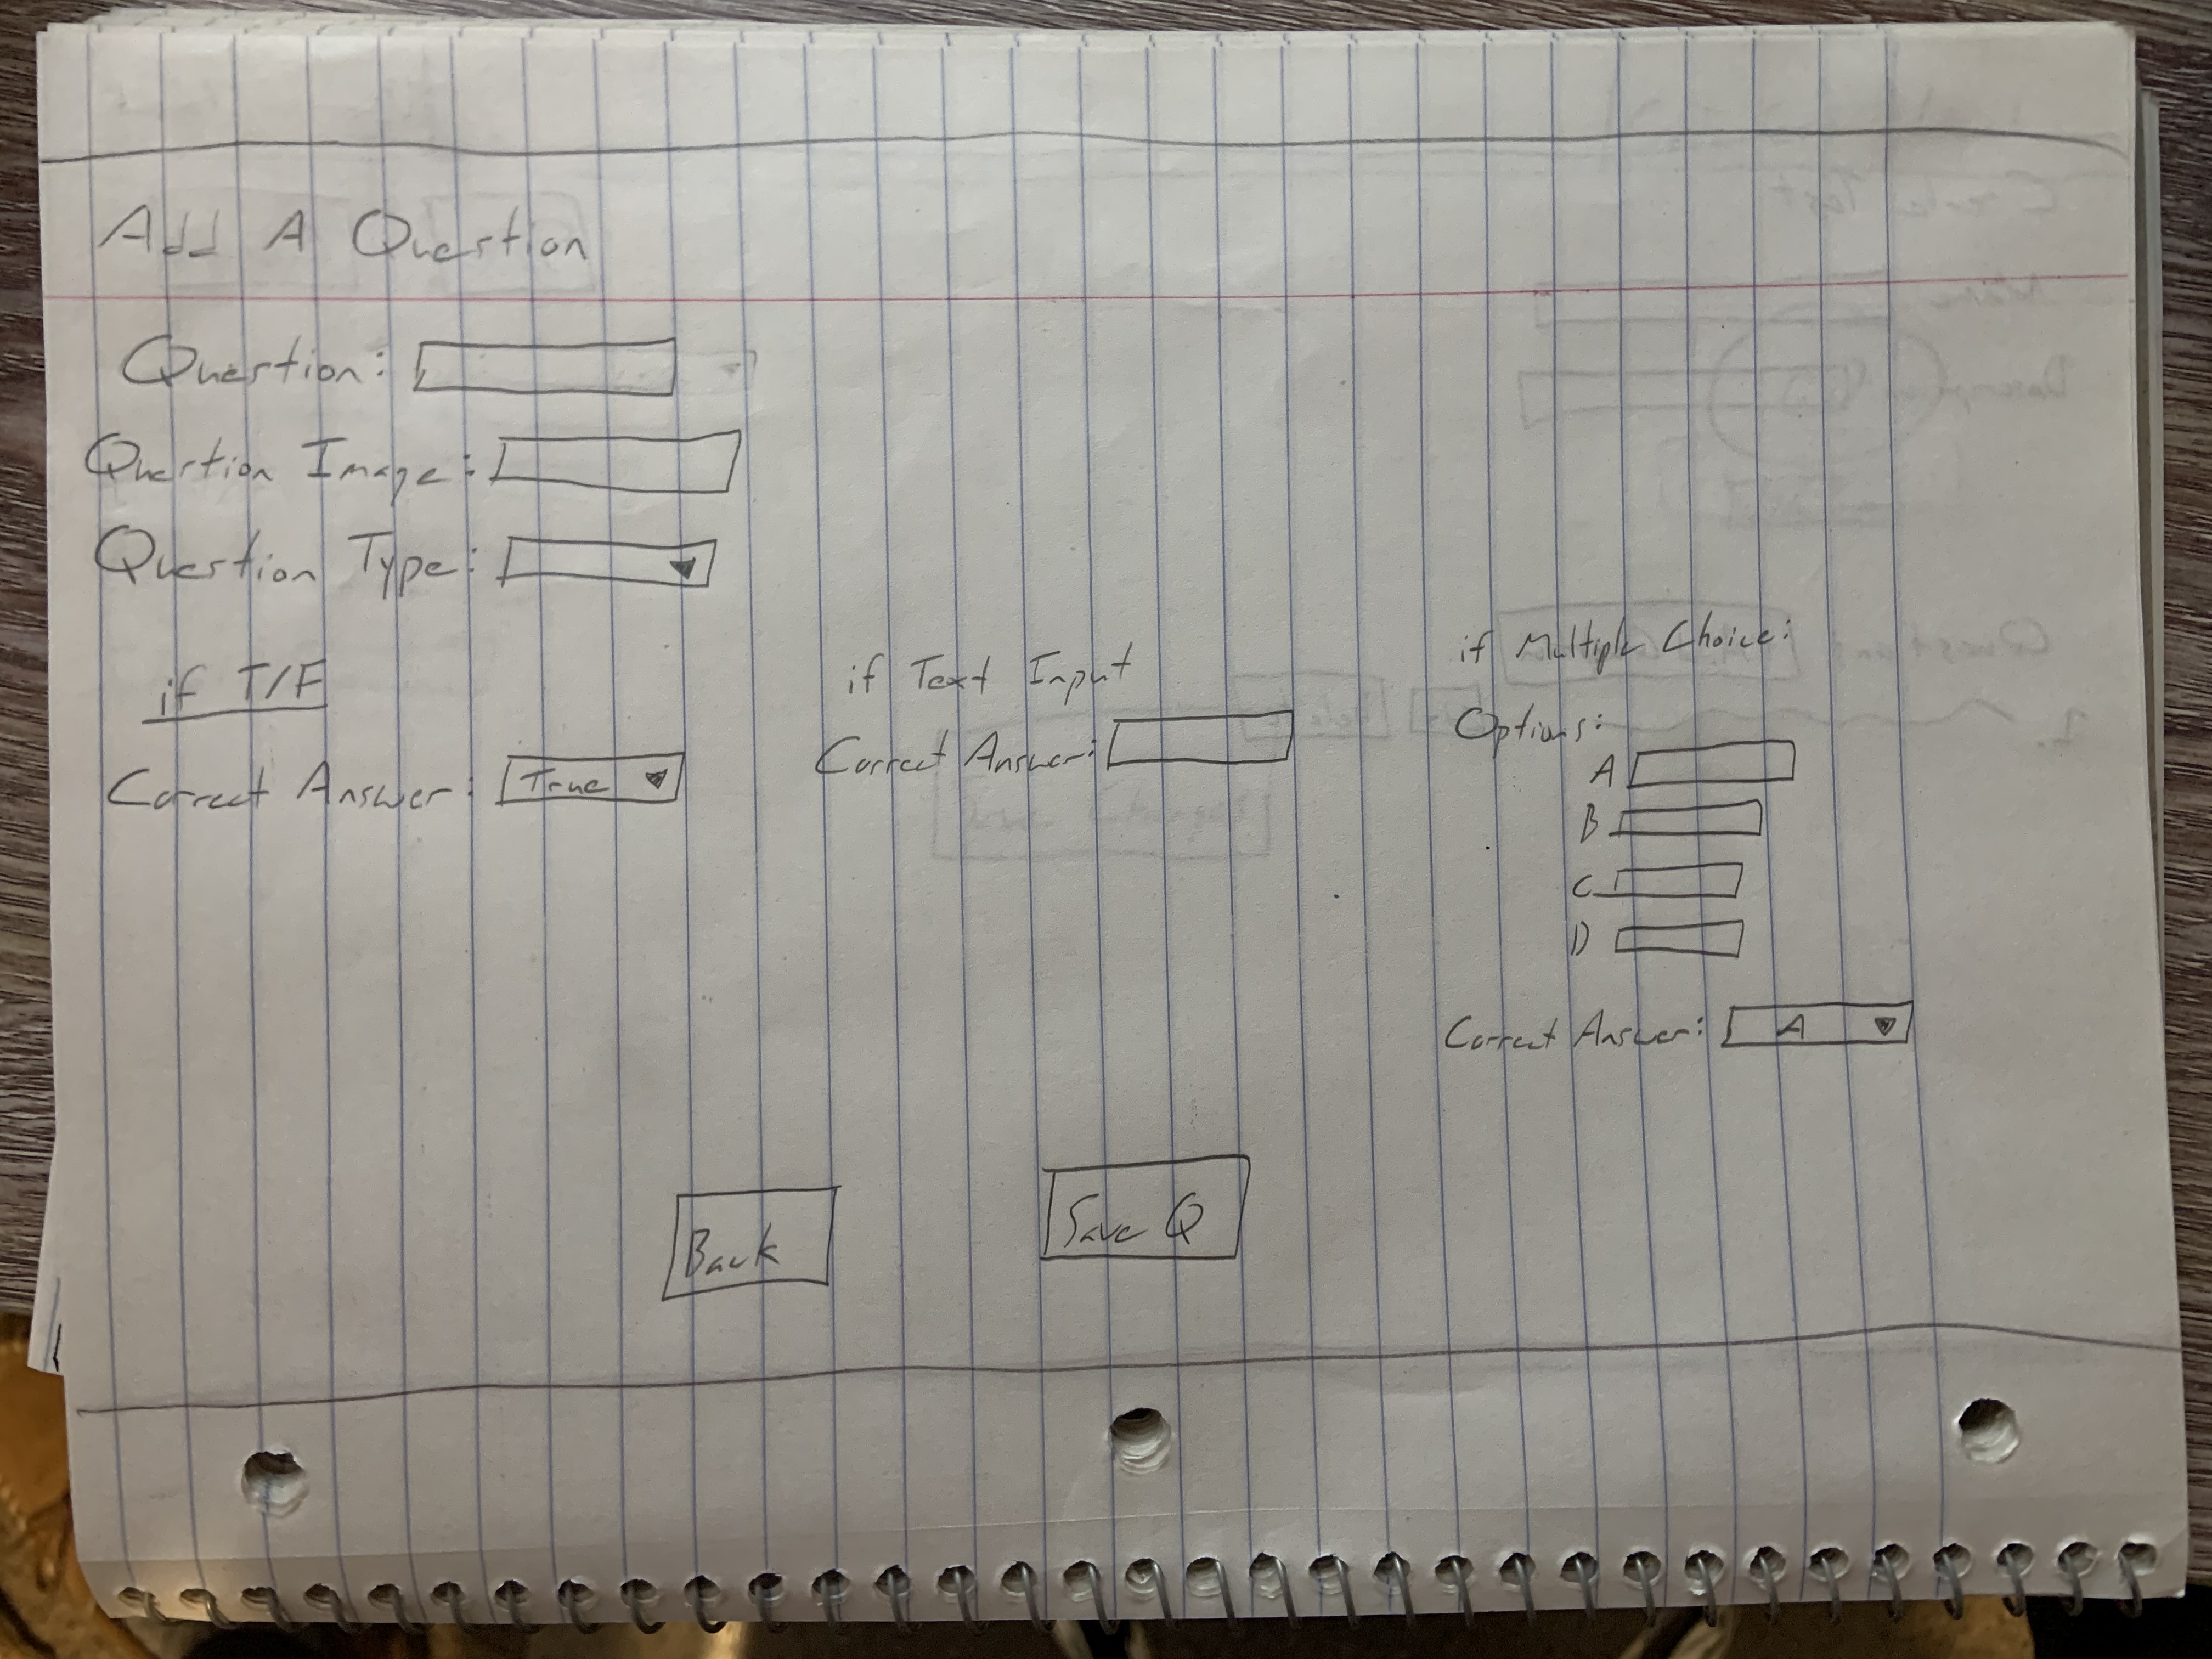 Add A Question
Question:
Question Image:
Question Type:
if T/F
Correct Answer: True
if Text Input
Correct Answer:
if Multiple Choice:
Options:
A
B
C
D
Correct Answer: A
Back
Save Q